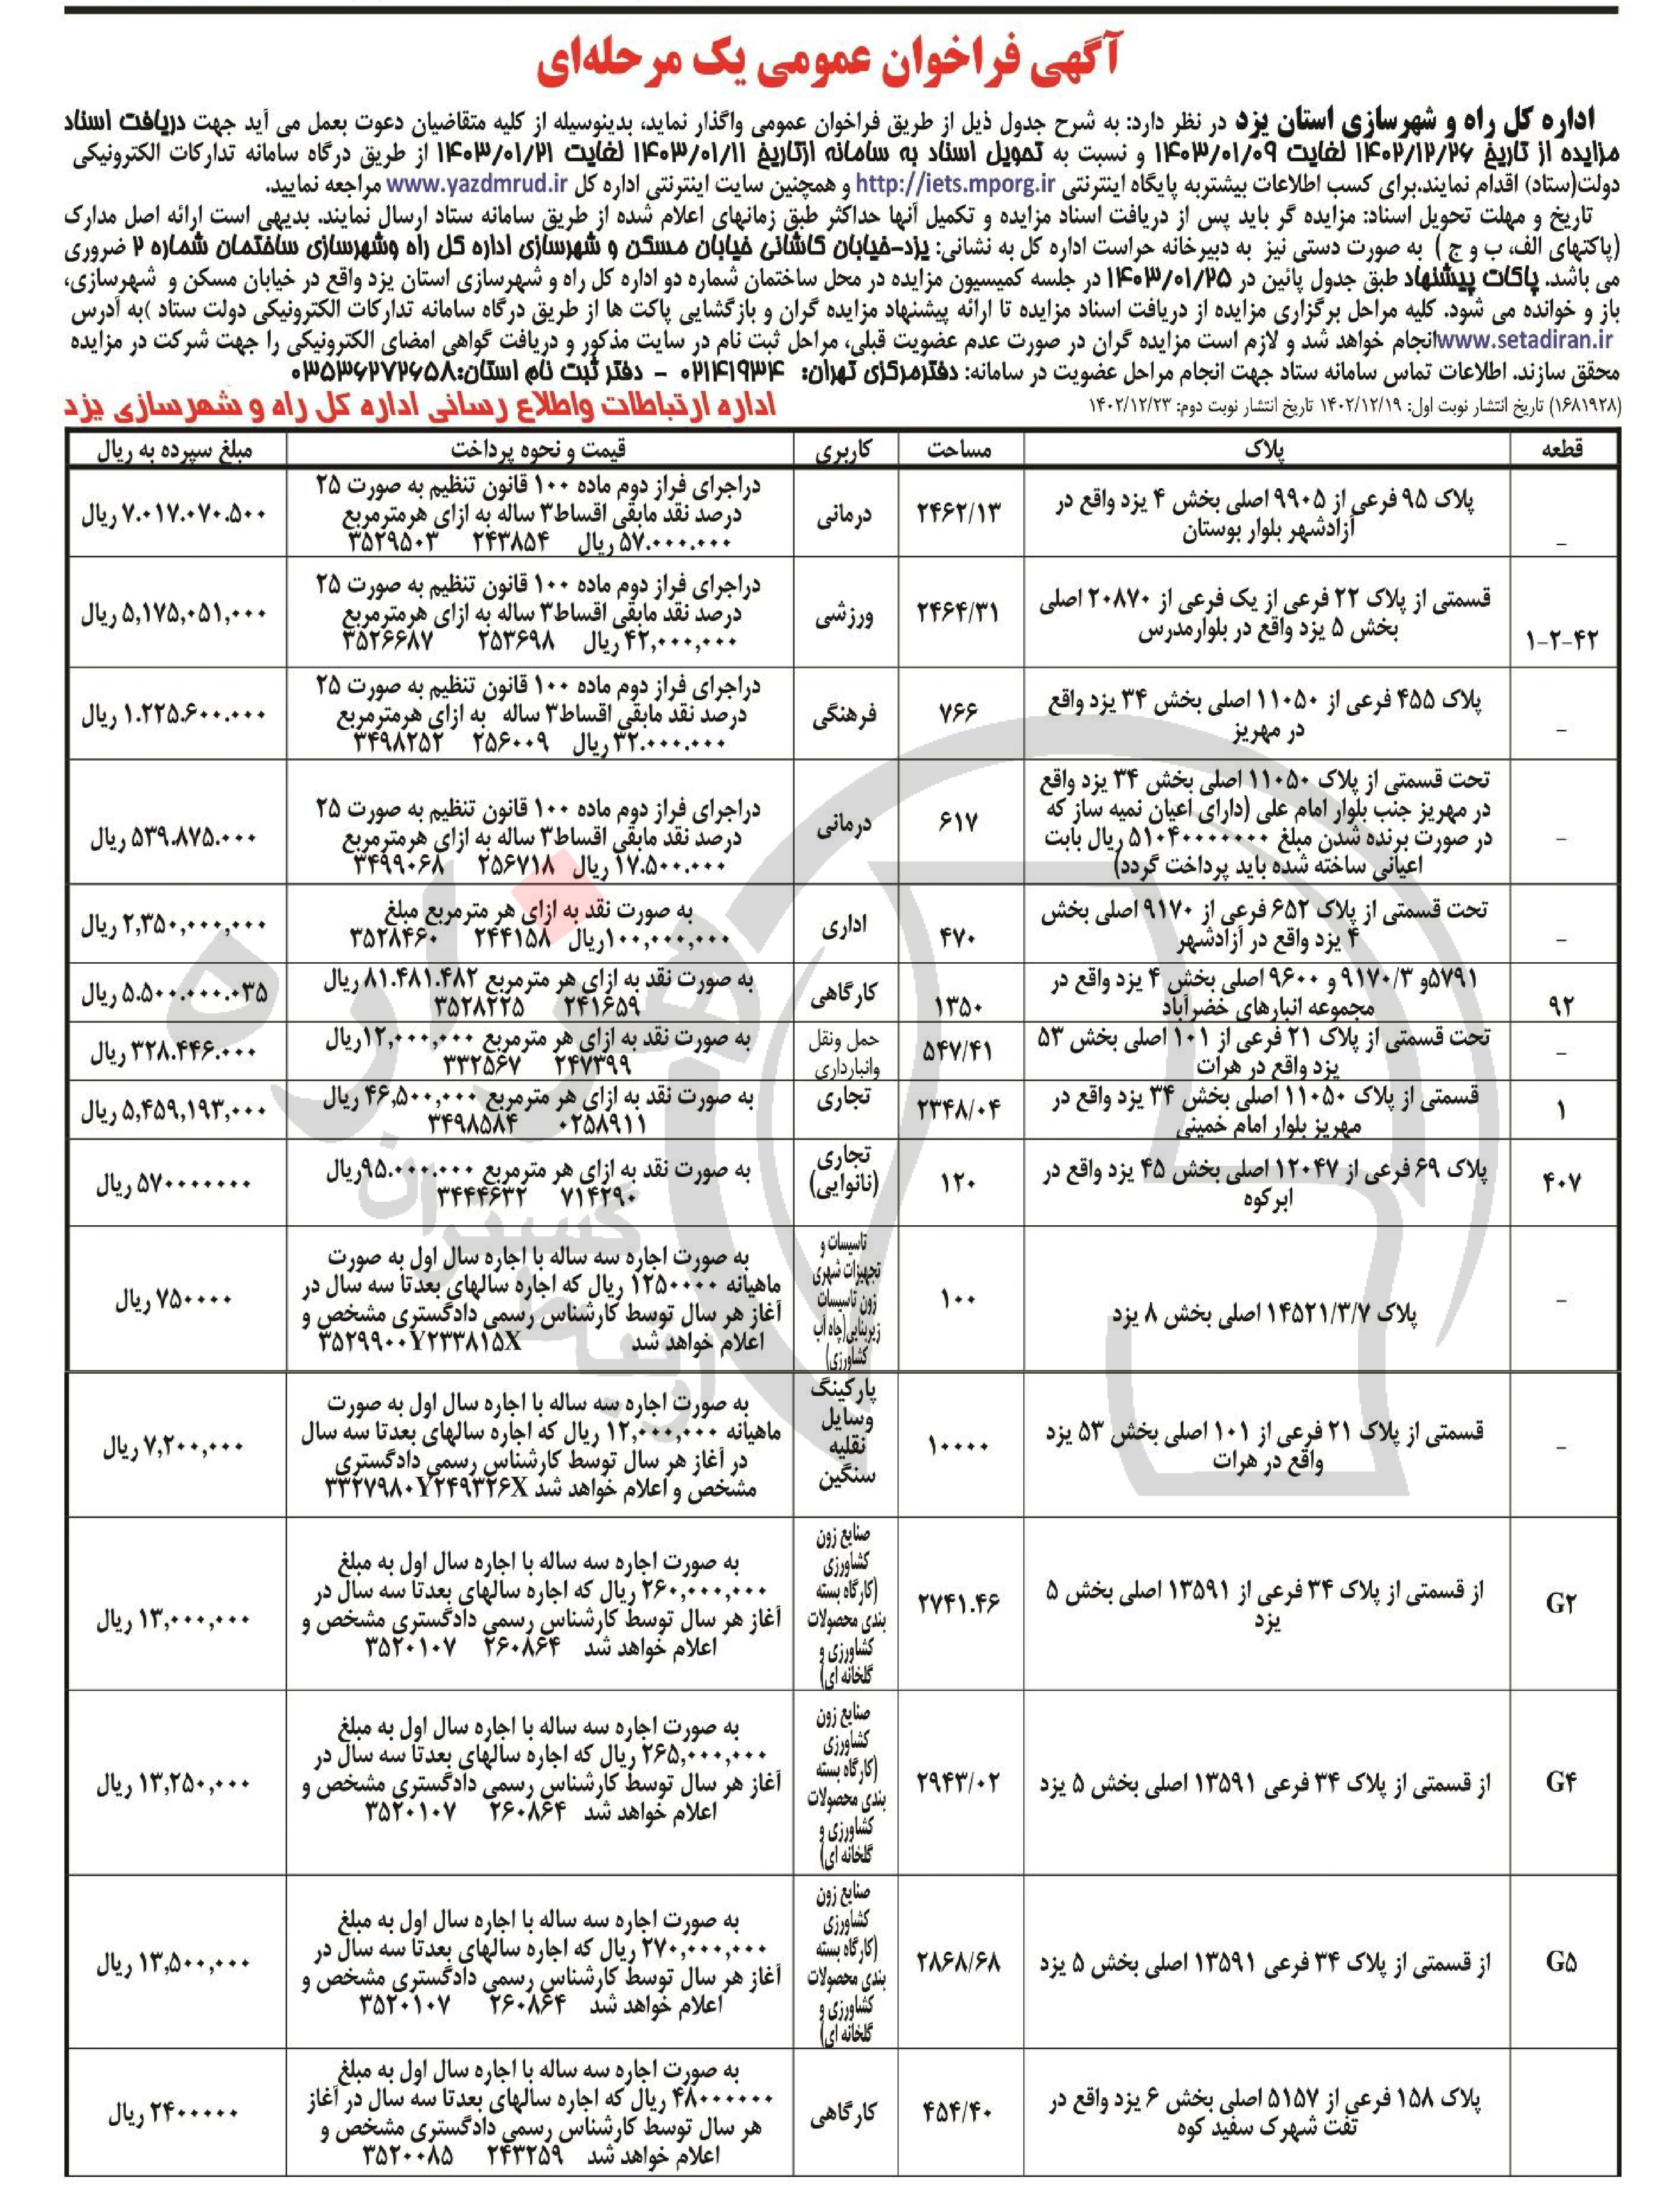 آگهی فراخوان عمومی یک مرحله‌ای
اداره کل راه و شهرسازی استان یزد در نظر دارد: به شرح جدول ذیل از طریق فراخوان عمومی واگذار نماید، بدینوسیله از کلیه متقاضیان دعوت بعمل می آید جهت دریافت اسناد
مزایده از تاریخ ۱۴۰۲/۱۲/۲۶ لغایت ۱۴۰۳/۰۱/۰۹ و نسبت به تحویل اسناد به سامانه ازتاریخ ۱۴۰۳/۰۱/۱۱ لغایت ۱۴۰۳/۰۱/۲۱ از طریق درگاه سامانه تدارکات الکترونیکی
دولت(ستاد) اقدام نمایند.برای کسب اطلاعات بیشتربه پایگاه اینترنتی http://iets.mporg.ir و همچنین سایت اینترنتی اداره کل www.yazdmrud.ir مراجعه نمایید.
تاریخ و مهلت تحویل اسناد: مزایده گر باید پس از دریافت اسناد مزایده و تکمیل آنها حداکثر طبق زمانهای اعلام شده از طریق سامانه ستاد ارسال نمایند. بدیهی است ارائه اصل مدارک
(پاکتهای الف، ب و ج ) به صورت دستی نیز به دبیرخانه حراست اداره کل به نشانی: یزد-خیابان کاشانی خیابان مسکن و شهرسازی اداره کل راه وشهرسازی ساختمان شماره ۲ ضروری
می باشد. پاکات پیشنهاد طبق جدول پائین در ۱۴۰۳/۰۱/۲۵ در جلسه کمیسیون مزایده در محل ساختمان شماره دو اداره کل راه و شهرسازی استان یزد واقع در خیابان مسکن و شهرسازی،
باز و خوانده می شود. کلیه مراحل برگزاری مزایده از دریافت اسناد مزایده تا ارائه پیشنهاد مزایده گران و بازگشایی پاکت ها از طریق درگاه سامانه تدارکات الکترونیکی دولت ستاد )به آدرس
www.setadiran.irانجام خواهد شد و لازم است مزایده گران در صورت عدم عضویت قبلی، مراحل ثبت نام در سایت مذکور و دریافت گواهی امضای الکترونیکی را جهت شرکت در مزایده
محقق سازند. اطلاعات تماس سامانه ستاد جهت انجام مراحل عضویت در سامانه: دفترمرکزی تهران: ۰۲۱۴۱۹۳۴ - دفتر ثبت نام استان:۰۳۵۳۶۲۷۲۶۵۸
(۱۶۸۱۹۲۸) تاریخ انتشار نوبت اول: ۱۴۰۲/۱۲/۱۹ تاریخ انتشار نوبت دوم: ۱۴۰۲/۱۲/۲۳ اداره ارتباطات واطلاع رسانی اداره کل راه و شهرسازی یزد
قطعه پلاک مساحت کاربری قیمت و نحوه پرداخت مبلغ سپرده به ریال
_
پلاک ۹۵ فرعی از ۹۹۰۵ اصلی بخش ۴ یزد واقع در
آزادشهر بلوار بوستان
۲۴۶۲/۱۳
درمانی
دراجرای فراز دوم ماده ۱۰۰ قانون تنظیم به صورت ۲۵
درصد نقد مابقی اقساط۳ ساله به ازای هرمترمربع
۵۷.۰۰۰.۰۰۰ ریال ۲۴۳۸۵۴ ۳۵۲۹۵۰۳
۷.۰۱۷.۰۷۰.۵۰۰ ریال
۱-۲-۴۲
قسمتی از پلاک ۲۲ فرعی از یک فرعی از ۲۰۸۷۰ اصلی
بخش ۵ یزد واقع در بلوارمدرس
۲۴۶۴/۳۱
ورزشی
دراجرای فراز دوم ماده ۱۰۰ قانون تنظیم به صورت ۲۵
درصد نقد مابقی اقساط۳ ساله به ازای هرمترمربع
۴۲,۰۰۰,۰۰۰ ریال ۲۵۳۶۹۸ ۳۵۲۶۶۸۷
۵,۱۷۵,۰۵۱,۰۰۰ ریال
_
پلاک ۴۵۵ فرعی از ۱۱۰۵۰ اصلی بخش ۳۴ یزد واقع
در مهریز
۷۶۶
فرهنگی
دراجرای فراز دوم ماده ۱۰۰ قانون تنظیم به صورت ۲۵
درصد نقد مابقی اقساط۳ ساله به ازای هرمترمربع
۳۲.۰۰۰.۰۰۰ ریال ۲۵۶۰۰۹ ۳۴۹۸۲۵۲
۱.۲۲۵.۶۰۰.۰۰۰ ریال
_
تحت قسمتی از پلاک ۱۱۰۵۰ اصلی بخش ۳۴ یزد واقع
در مهریز جنب بلوار امام علی (دارای اعیان نمیه ساز که
در صورت برنده شدن مبلغ ۵۱۰۴۰۰۰۰۰۰۰ ریال بابت
اعیانی ساخته شده باید پرداخت گردد)
۶۱۷
درمانی
دراجرای فراز دوم ماده ۱۰۰ قانون تنظیم به صورت ۲۵
درصد نقد مابقی اقساط۳ ساله به ازای هرمترمربع
۱۷.۵۰۰.۰۰۰ ریال ۲۵۶۷۱۸ ۳۴۹۹۰۶۸
۵۳۹.۸۷۵.۰۰۰ ریال
_
تحت قسمتی از پلاک ۶۵۲ فرعی از ۹۱۷۰ اصلی بخش
۴ یزد واقع در آزادشهر
۴۷۰
اداری
به صورت نقد به ازای هر مترمربع مبلغ
۱۰۰,۰۰۰,۰۰۰ریال ۲۴۴۱۵۸ ۳۵۲۸۴۶۰
۲,۳۵۰,۰۰۰,۰۰۰ ریال
۹۲
۵۷۹۱و ۹۱۷۰/۳ و ۹۶۰۰ اصلی بخش ۴ یزد واقع در
مجموعه انبارهای خضرآباد
۱۳۵۰
کارگاهی
به صورت نقد به ازای هر مترمربع ۸۱.۴۸۱.۴۸۲ ریال
۲۴۱۶۵۹ ۳۵۲۸۲۲۵
۵.۵۰۰.۰۰۰.۰۳۵ ریال
_
تحت قسمتی از پلاک ۲۱ فرعی از ۱۰۱ اصلی بخش ۵۳
یزد واقع در هرات
۵۴۷/۴۱
حمل ونقل
وانبارداری
به صورت نقد به ازای هر مترمربع ۱۲,۰۰۰,۰۰۰ریال
۲۴۷۳۹۹ ۳۳۲۵۶۷
۳۲۸.۴۴۶.۰۰۰ ریال
۱
قسمتی از پلاک ۱۱۰۵۰ اصلی بخش ۳۴ یزد واقع در
مهریز بلوار امام خمینی
۲۳۴۸/۰۴
تجاری
به صورت نقد به ازای هر مترمربع ۴۶,۵۰۰,۰۰۰ ریال
۰۲۵۸۹۱۱ ۳۴۹۸۵۸۴
۵,۴۵۹,۱۹۳,۰۰۰ ریال
۴۰۷
پلاک ۶۹ فرعی از ۱۲۰۴۷ اصلی بخش ۴۵ یزد واقع در
ابرکوه
۱۲۰
تجاری
(نانوایی)
به صورت نقد به ازای هر مترمربع ۹۵.۰۰۰.۰۰۰ریال
۷۱۴۲۹۰ ۳۴۴۴۶۳۲
۵۷۰۰۰۰۰۰۰ ریال
_
پلاک ۱۴۵۲۱/۳/۷ اصلی بخش ۸ یزد
۱۰۰
تاسیسات و
تجهیزات شهری
زون تاسیسات
زیربنایی(چاه آب
کشاورزی)
به صورت اجاره سه ساله با اجاره سال اول به صورت
ماهیانه ۱۲۵۰۰۰۰ ریال که اجاره سالهای بعدتا سه سال در
آغاز هر سال توسط کارشناس رسمی دادگستری مشخص و
اعلام خواهد شد ۳۵۲۹۹۰۰Y۲۳۳۸۱۵X
۷۵۰۰۰۰ ریال
_
قسمتی از پلاک ۲۱ فرعی از ۱۰۱ اصلی بخش ۵۳ یزد
واقع در هرات
۱۰۰۰۰
پارکینگ
وسایل
نقلیه
سنگین
به صورت اجاره سه ساله با اجاره سال اول به صورت
ماهیانه ۱۲,۰۰۰,۰۰۰ ریال که اجاره سالهای بعدتا سه سال
در آغاز هر سال توسط کارشناس رسمی دادگستری
مشخص و اعلام خواهد شد ۳۳۲۷۹۸۰Y۲۴۹۳۲۶X
۷,۲۰۰,۰۰۰ ریال
G۲
از قسمتی از پلاک ۳۴ فرعی از ۱۳۵۹۱ اصلی بخش ۵
یزد
۲۷۴۱.۴۶
صنایع زون
کشاورزی
(کارگاه بسته
بندی محصولات
کشاورزی و
گلخانه ای)
به صورت اجاره سه ساله با اجاره سال اول به مبلغ
۲۶۰,۰۰۰,۰۰۰ ریال که اجاره سالهای بعدتا سه سال در
آغاز هر سال توسط کارشناس رسمی دادگستری مشخص و
اعلام خواهد شد ۲۶۰۸۶۴ ۳۵۲۰۱۰۷
۱۳,۰۰۰,۰۰۰ ریال
G۴
از قسمتی از پلاک ۳۴ فرعی ۱۳۵۹۱ اصلی بخش ۵ یزد
۲۹۴۳/۰۲
صنایع زون
کشاورزی
(کارگاه بسته
بندی محصولات
کشاورزی و
گلخانه ای)
به صورت اجاره سه ساله با اجاره سال اول به مبلغ
۲۶۵,۰۰۰,۰۰۰ ریال که اجاره سالهای بعدتا سه سال در
آغاز هر سال توسط کارشناس رسمی دادگستری مشخص و
اعلام خواهد شد ۲۶۰۸۶۴ ۳۵۲۰۱۰۷
۱۳,۲۵۰,۰۰۰ ریال
G۵
از قسمتی از پلاک ۳۴ فرعی ۱۳۵۹۱ اصلی بخش ۵ یزد
۲۸۶۸/۶۸
صنایع زون
کشاورزی
(کارگاه بسته
بندی محصولات
کشاورزی و
گلخانه ای)
به صورت اجاره سه ساله با اجاره سال اول به مبلغ
۲۷۰,۰۰۰,۰۰۰ ریال که اجاره سالهای بعدتا سه سال در
آغاز هر سال توسط کارشناس رسمی دادگستری مشخص و
اعلام خواهد شد ۲۶۰۸۶۴ ۳۵۲۰۱۰۷
۱۳,۵۰۰,۰۰۰ ریال
پلاک ۱۵۸ فرعی از ۵۱۵۷ اصلی بخش ۶ یزد واقع در
تفت شهرک سفید کوه
۴۵۴/۴۰
کارگاهی
به صورت اجاره سه ساله با اجاره سال اول به مبلغ
۴۸۰۰۰۰۰۰ ریال که اجاره سالهای بعدتا سه سال در آغاز
هر سال توسط کارشناس رسمی دادگستری مشخص و
اعلام خواهد شد ۲۴۳۲۵۹ ۳۵۲۰۰۸۵
۲۴۰۰۰۰۰ ریال